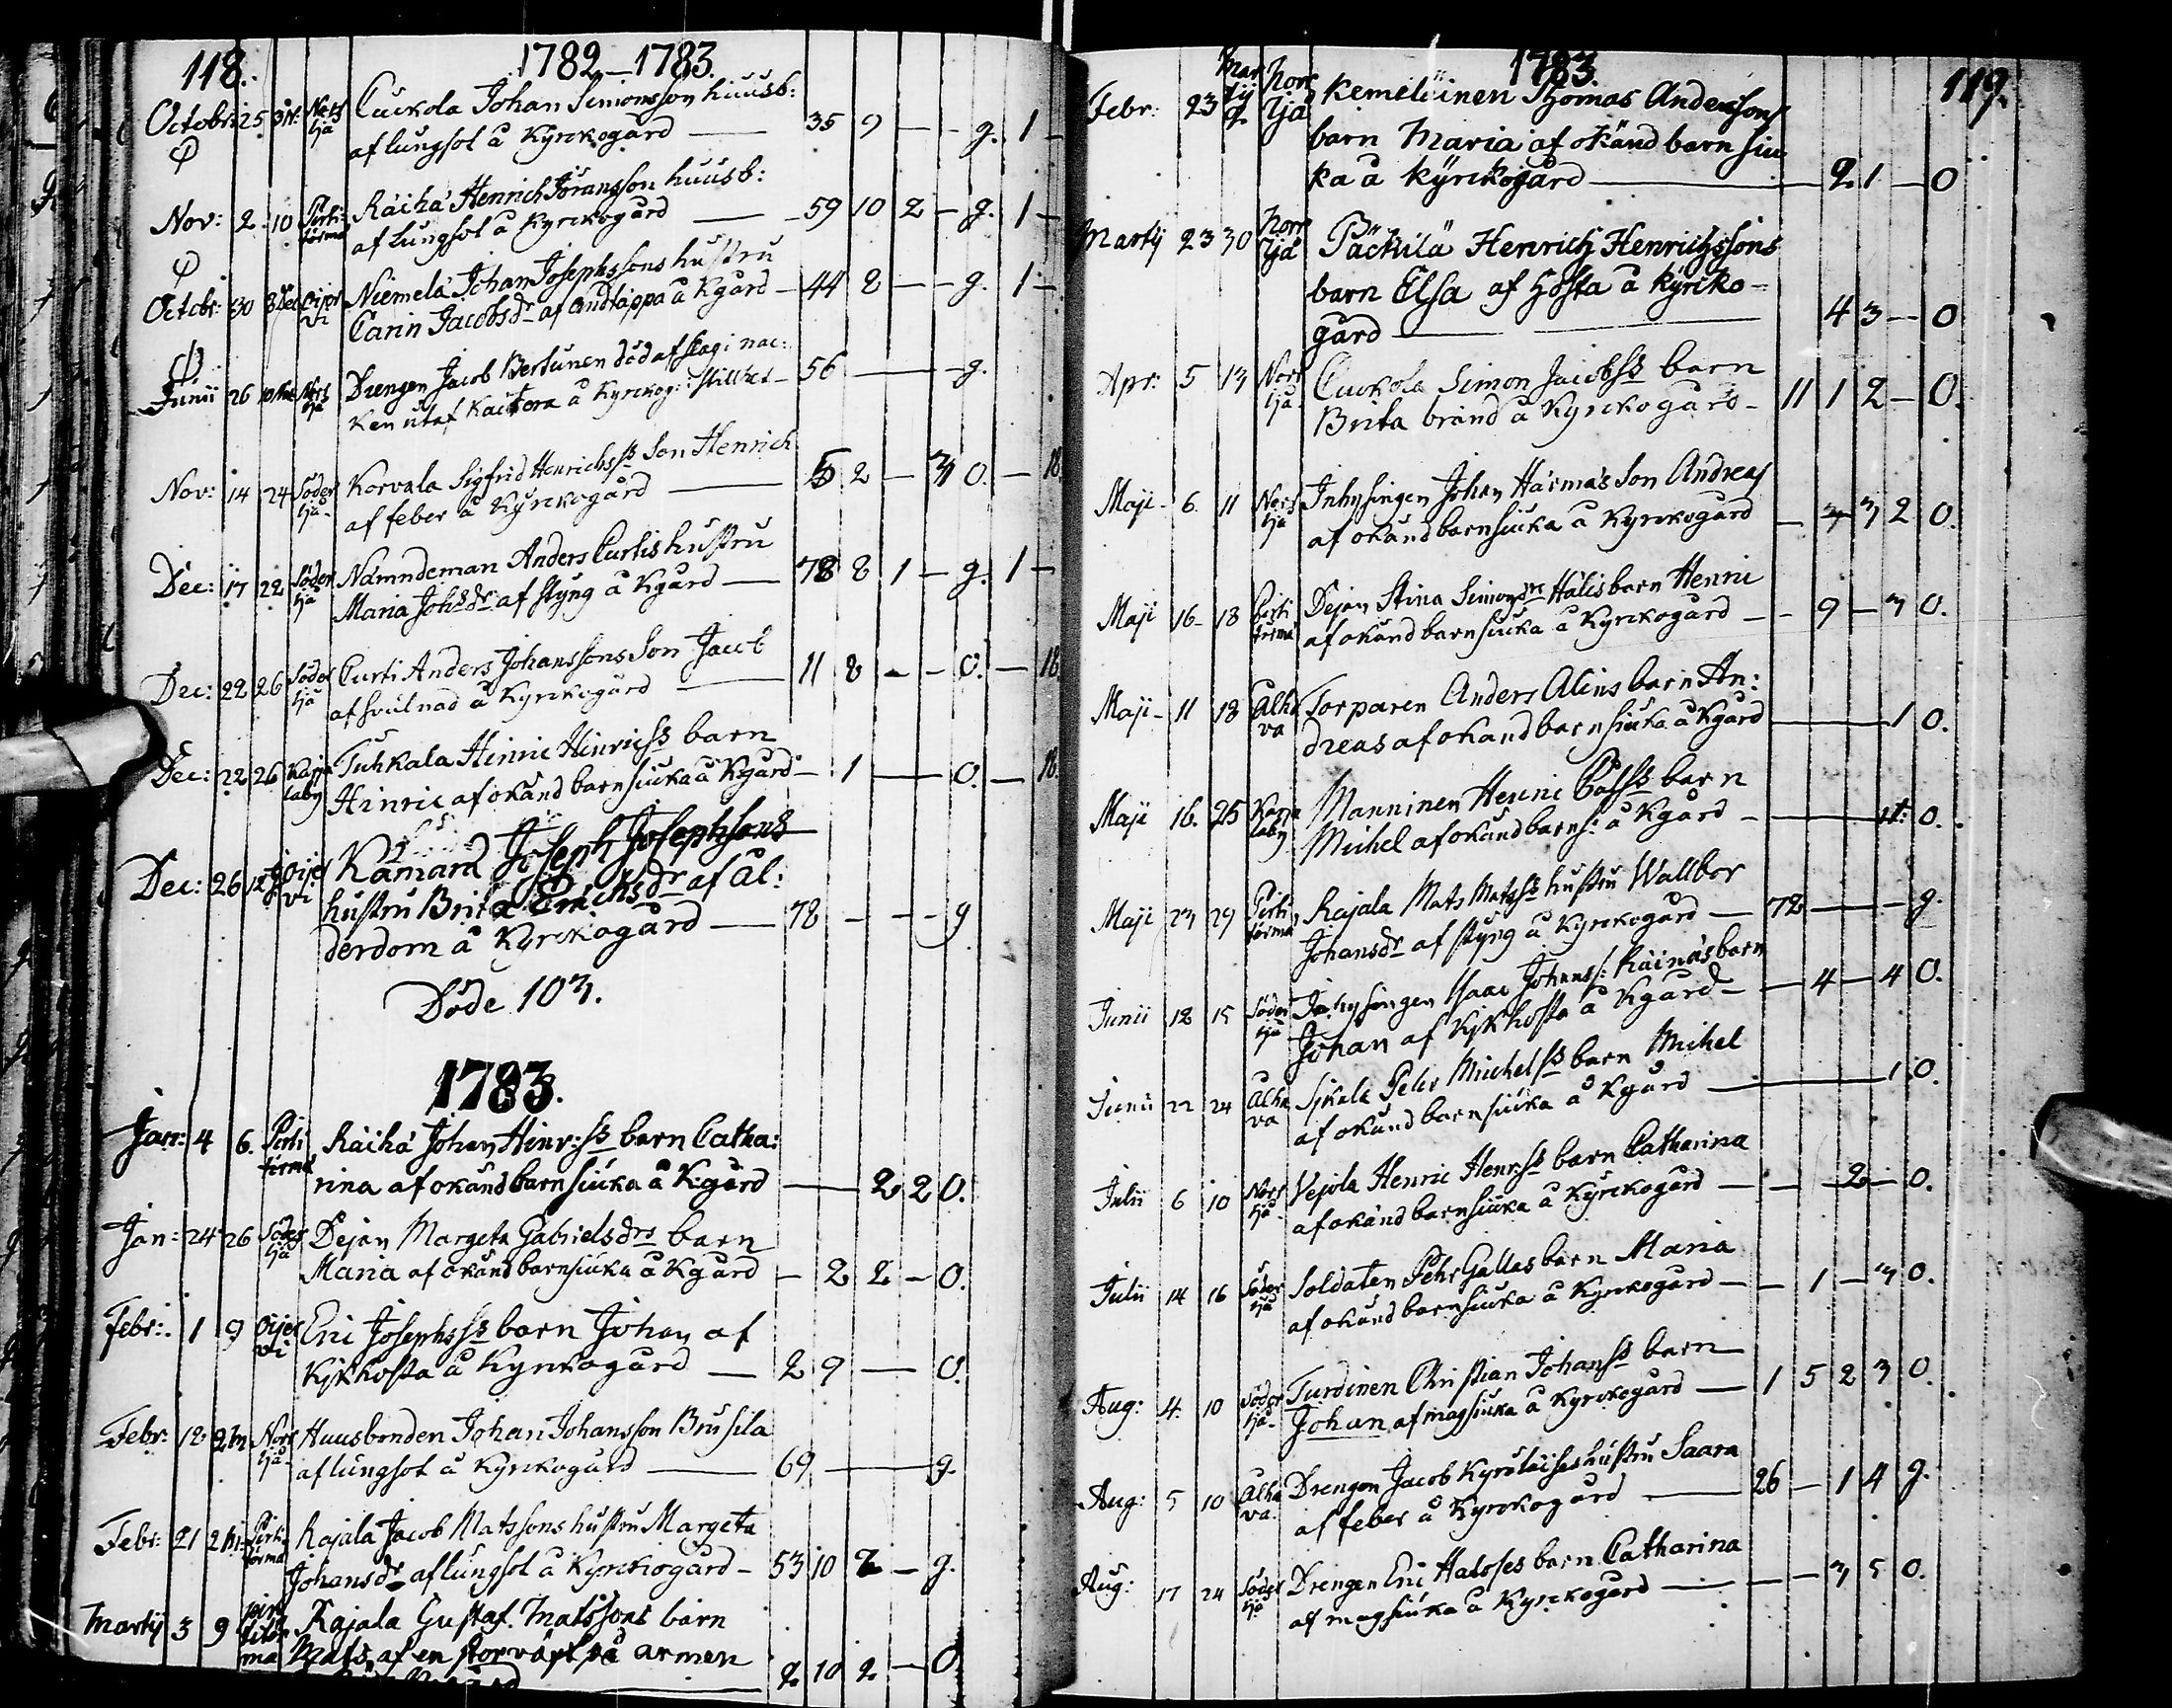 118.
1782–1783.
Octobr: 25 Norr Cuckola Johan Simonsson huusb:
ljä af lungsot å Kyrckogård — 35 9 — – g. 1 –
Nov: 2 10 Pirti Räihä Henrich Jöransson huusb:
törmä af lungsot å Kyrckogård — 59 10 2 – g. 1 –
Octobr: 30 8 Dec Oijer Niemelä Johan Josephssons hustru
vi Carin Jacobsdr af andtäppa å Kgård – 44 8 – – g. 1 –
Junii 26 Norr Drengen Jacob Bertunen död af slag i nac:
ljä ken utaf å Kyrckog: i stillhet – 56 — g.
Nov: 14 24 Söder Korvala Sigfrid Henrichss Son Henrich
ljä af feber å Kyrckogård — 5 2 – 3 0. – 18
Dec: 17 22 Söder Nämndeman Anders Curtis hustru
ljä Maria Johsdr af styng å Kgård — 78 8 1 – g. 1 –
Dec: 22 26 Söder Curti Anders Johanssons Son Jacob
ljä af svulnad å Kyrckogård — 11 8 – – 0. – 18
Dec: 22 26 Karja Tuhkala Hinric Hinricss barn
laby Hinric af okänd barnsiuka å Kgård – 1 — 0. – 18.
Dec: 26 Oijer Kämärä Joseph Josephsons
vi hustru Brita Erichsdr af ål:
derdom å Kyrckogård — 78 – – – g
Döde 103.
1783.
Jan: 4 6. Pirti Räihä Johan Hinr:ss barn Catha:
törmä rina af okänd barnsiuka å K:gård — 2 2 0.
Jan: 24 26 Söder Dejan Margeta Gabrielsdrs barn
ljä Maria af okänd barnsiuka å Kgård – 2 2 – 0.
Febr: 1 9 Oijer Eric Josephsss barn Johan af
vi Kykhosta å Kyrckogård — 2 9 — 0.
Febr: 12 23 Norr Huusbonden Johan Johansson Brusila
ljä af lungsot å Kyrckogård — 69 — g.
Febr: 21 Pirti Rajala Jacob Matssons hustru Margeta
törmä Johansdr af lungsot å Kyrckogård – 53 10 2 – g.
Martij 3 9 Rajala Gustaf Matssons barn
Mats, af en stor växt på armen
2 10 2 – 0
1783.
119.
Febr: 23 Norr Kemeläinen Thomas Anderssons
ljä barn Maria af okänd barn siu
ka å kyrckogård — 2 1 – 0
Martij 23 30 Norr Päckilä Henrich Henrichssons
ljä barn Elsa af Hosta å kyrcko-
gård — 4 3 – 0
Apr: 5 13 Norr Cuckola Simon Jacobss barn
ljä Brita bränd å Kyrckogård – 11 1 2 – 0.
Maji 6. 11 Norr Inhysingen Johan Härmäs Son Andreas
ljä af okänd barnsiuka å Kyrckogård – 3 2 0.
Maji 16 18 Pirti Dejan Stina Simonsdrs Hälis barn Henric
törmä af okänd barnsiuka å Kyrckogård – 9 – 3 0.
Maji 11 18 Alha Torparen Anders Alins barn An:
va dreas af okänd barnsiuka å Kgård — 1 0.
Maji 16. 25 Karja Manninen Henric barn
laby Michel af okänd barns: å Kgård – 0.
Maji 23 29 Pirti Rajala Mats Matsss hustru Wallbor
törmä Johansdr af styng å Kyrckogård — 72 — g.
Junii 12 15 Söder Inhysingen Isaac Johanss: Räinäs barn
ljä Johan af Kykhosta å Kgård – 4 – 4 0.
Junii 22 24 Alha Sjkalä Pehr Michelss barn Mihel
va af okänd barnsiuka å Kgård — 1 0.
Julii 6 10 Norr Vejola Henric Henr:ss barn Catharina
ljä af okänd barnsiuka å Kyrckogård — 2 – 0.
Julii 14 16 Söder Soldaten Pehr Gallas barn Maria
ljä af okänd barnsiuka å Kyrckogård – 1 – 3 0.
Aug: 4. 10 Söder Turdinen Christian Johanss barn
ljä Johan af magsiuka å Kyrckogård — 1 5 2 3 0.
Aug: 5 10 Alha Drengen Jacob Kyröläises hustru Saara
va. af feber å Kyrckogård — 26 – 1 4 g.
Aug: 17 24 Söder Drengen Eric Haloses barn Catharina
ljä af magsiuka å Kyrckogård — 3 5 0.